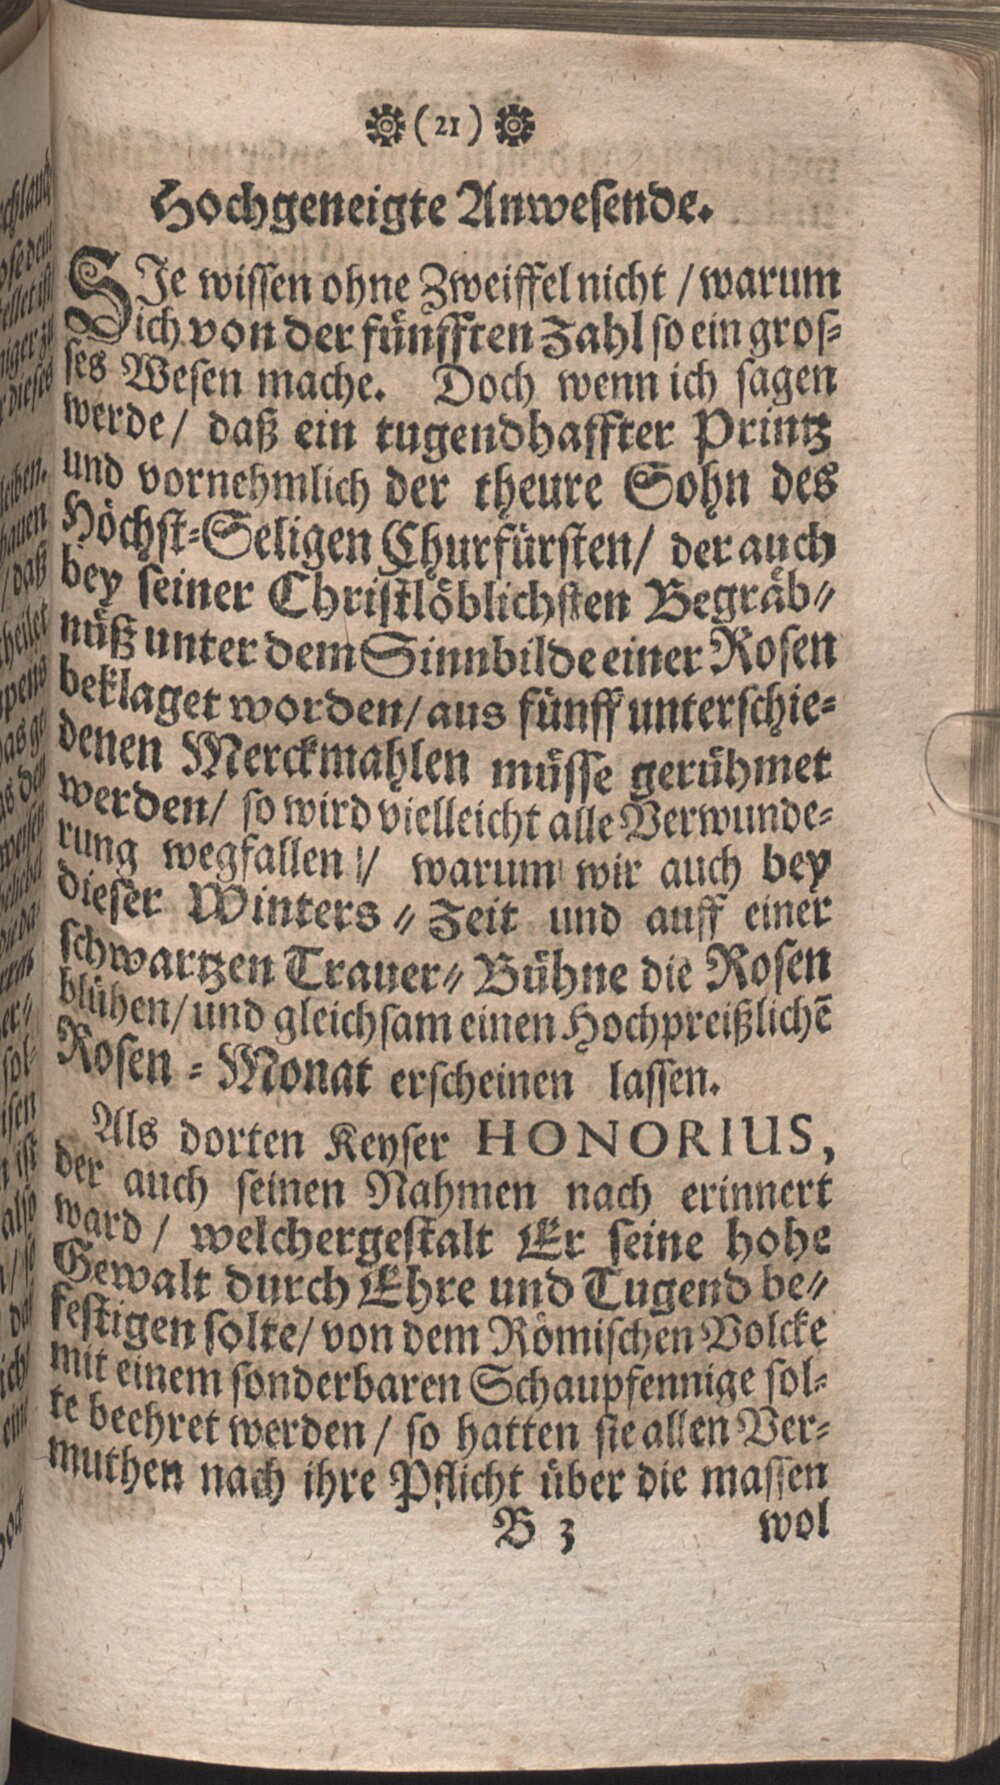 (21)
Hochgeneigte Anwesende.
SJe wissen ohne Zweiffel nicht / warum
ich von der fünfften Zahl so ein gros-
ses Wesen mache. Doch wenn ich sagen
werde / daß ein tugendhaffter Printz
und vornehmlich der theure Sohn des
Höchst-Seligen Churfürsten / der auch
bey seiner Christlöblichsten Begräb-
nüß unter dem Sinnbilde einer Rosen
beklaget worden / aus fünff unterschie-
denen Merckmahlen müsse gerühmet
werden / so wird vielleicht alle Verwunde-
rung wegfallen / warum wir auch bey
dieser Winters-Zeit und auff einer
schwartzen Trauer-Bühne die Rosen
blühen / und gleichsam einen Hochpreißlichē
Rosen-Monat erscheinen lassen.
Als dorten Keyser HONORIUS,
der auch seinen Nahmen nach erinnert
ward / welchergestalt Er seine hohe
Gewalt durch Ehre und Tugend be-
festigen solte / von dem Römischen Volcke
mit einem sonderbaren Schaupfennige sol-
te beehret werden / so hatten sie allen Ver-
muthen nach ihre Pflicht über die massen
B 3 wol